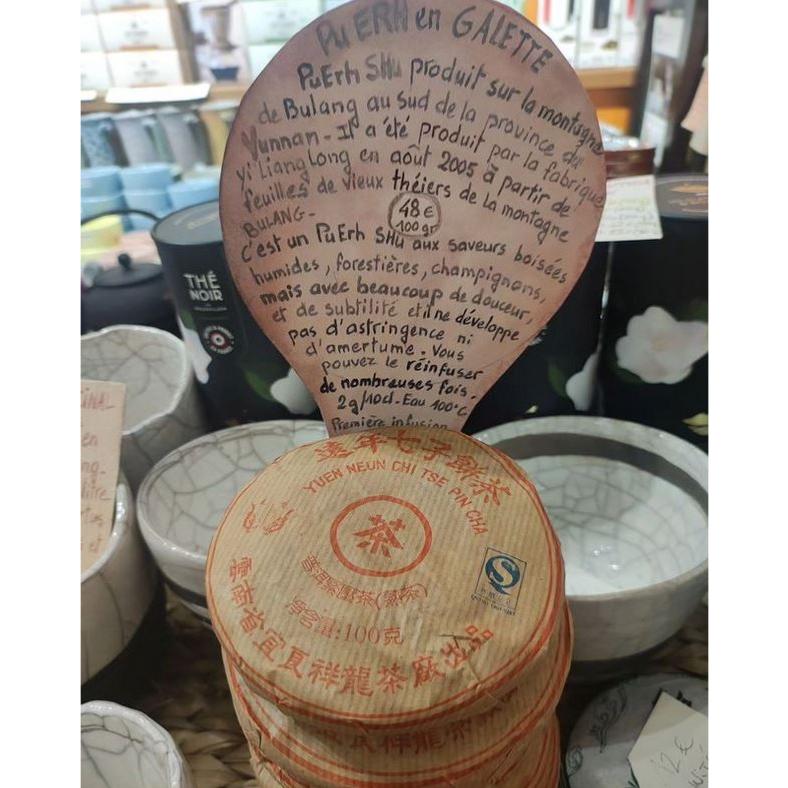 PuERH en GALETTE
PuErh SHu produit sur la montagne
de Bulang au sud de la province du
Yunnan - Il a été produit par la fabrique
Yi Liang Long en août 2005 à partir de
feuilles de vieux théiers de la montagne
BULANG -
48 €
100 gr
c'est un PuErh SHu aux saveurs boisées
humides, forestières, champignons,
mais avec beaucoup de douceur,
et de subtilité et il ne développe
pas d'astringence ni
d'amertume. Vous
pouvez le réinfuser
de nombreuses fois.
2g/10cl. Eau 100°C
Première infusion
THÉ
NOIR
遠年七子餅茶
YUEN NEUN CHI TSE PIN CHA
茶
普洱緊壓茶(熟茶)
净含量:100克
雲南省宜良祥龍茶廠出品
祥龍茶
en
et
12 €